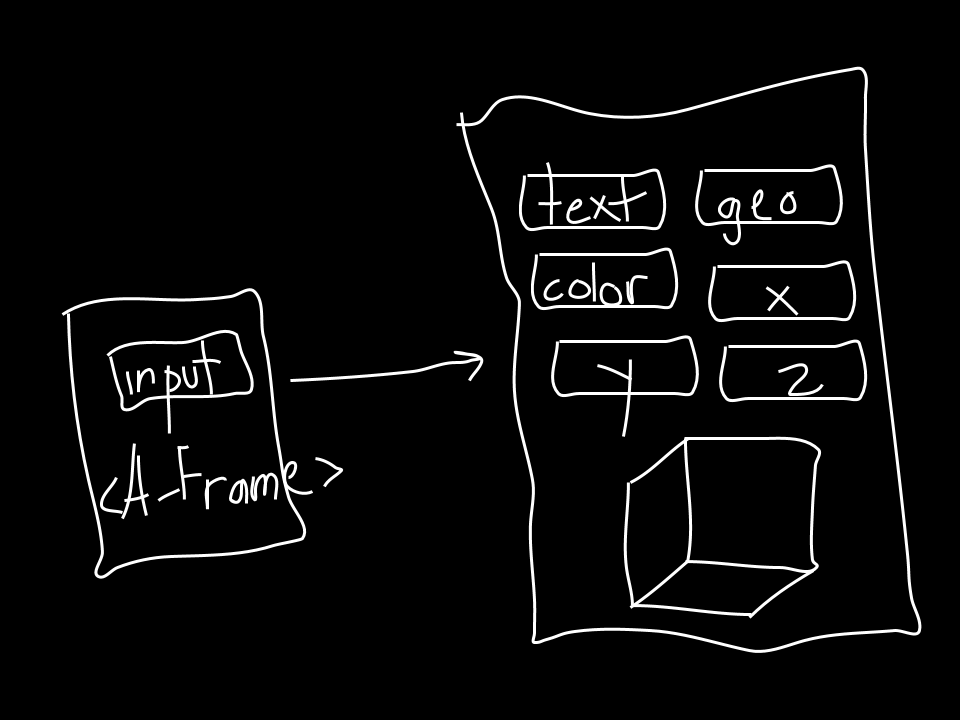 input
<A-Frame>
text
geo
color
x
y
z